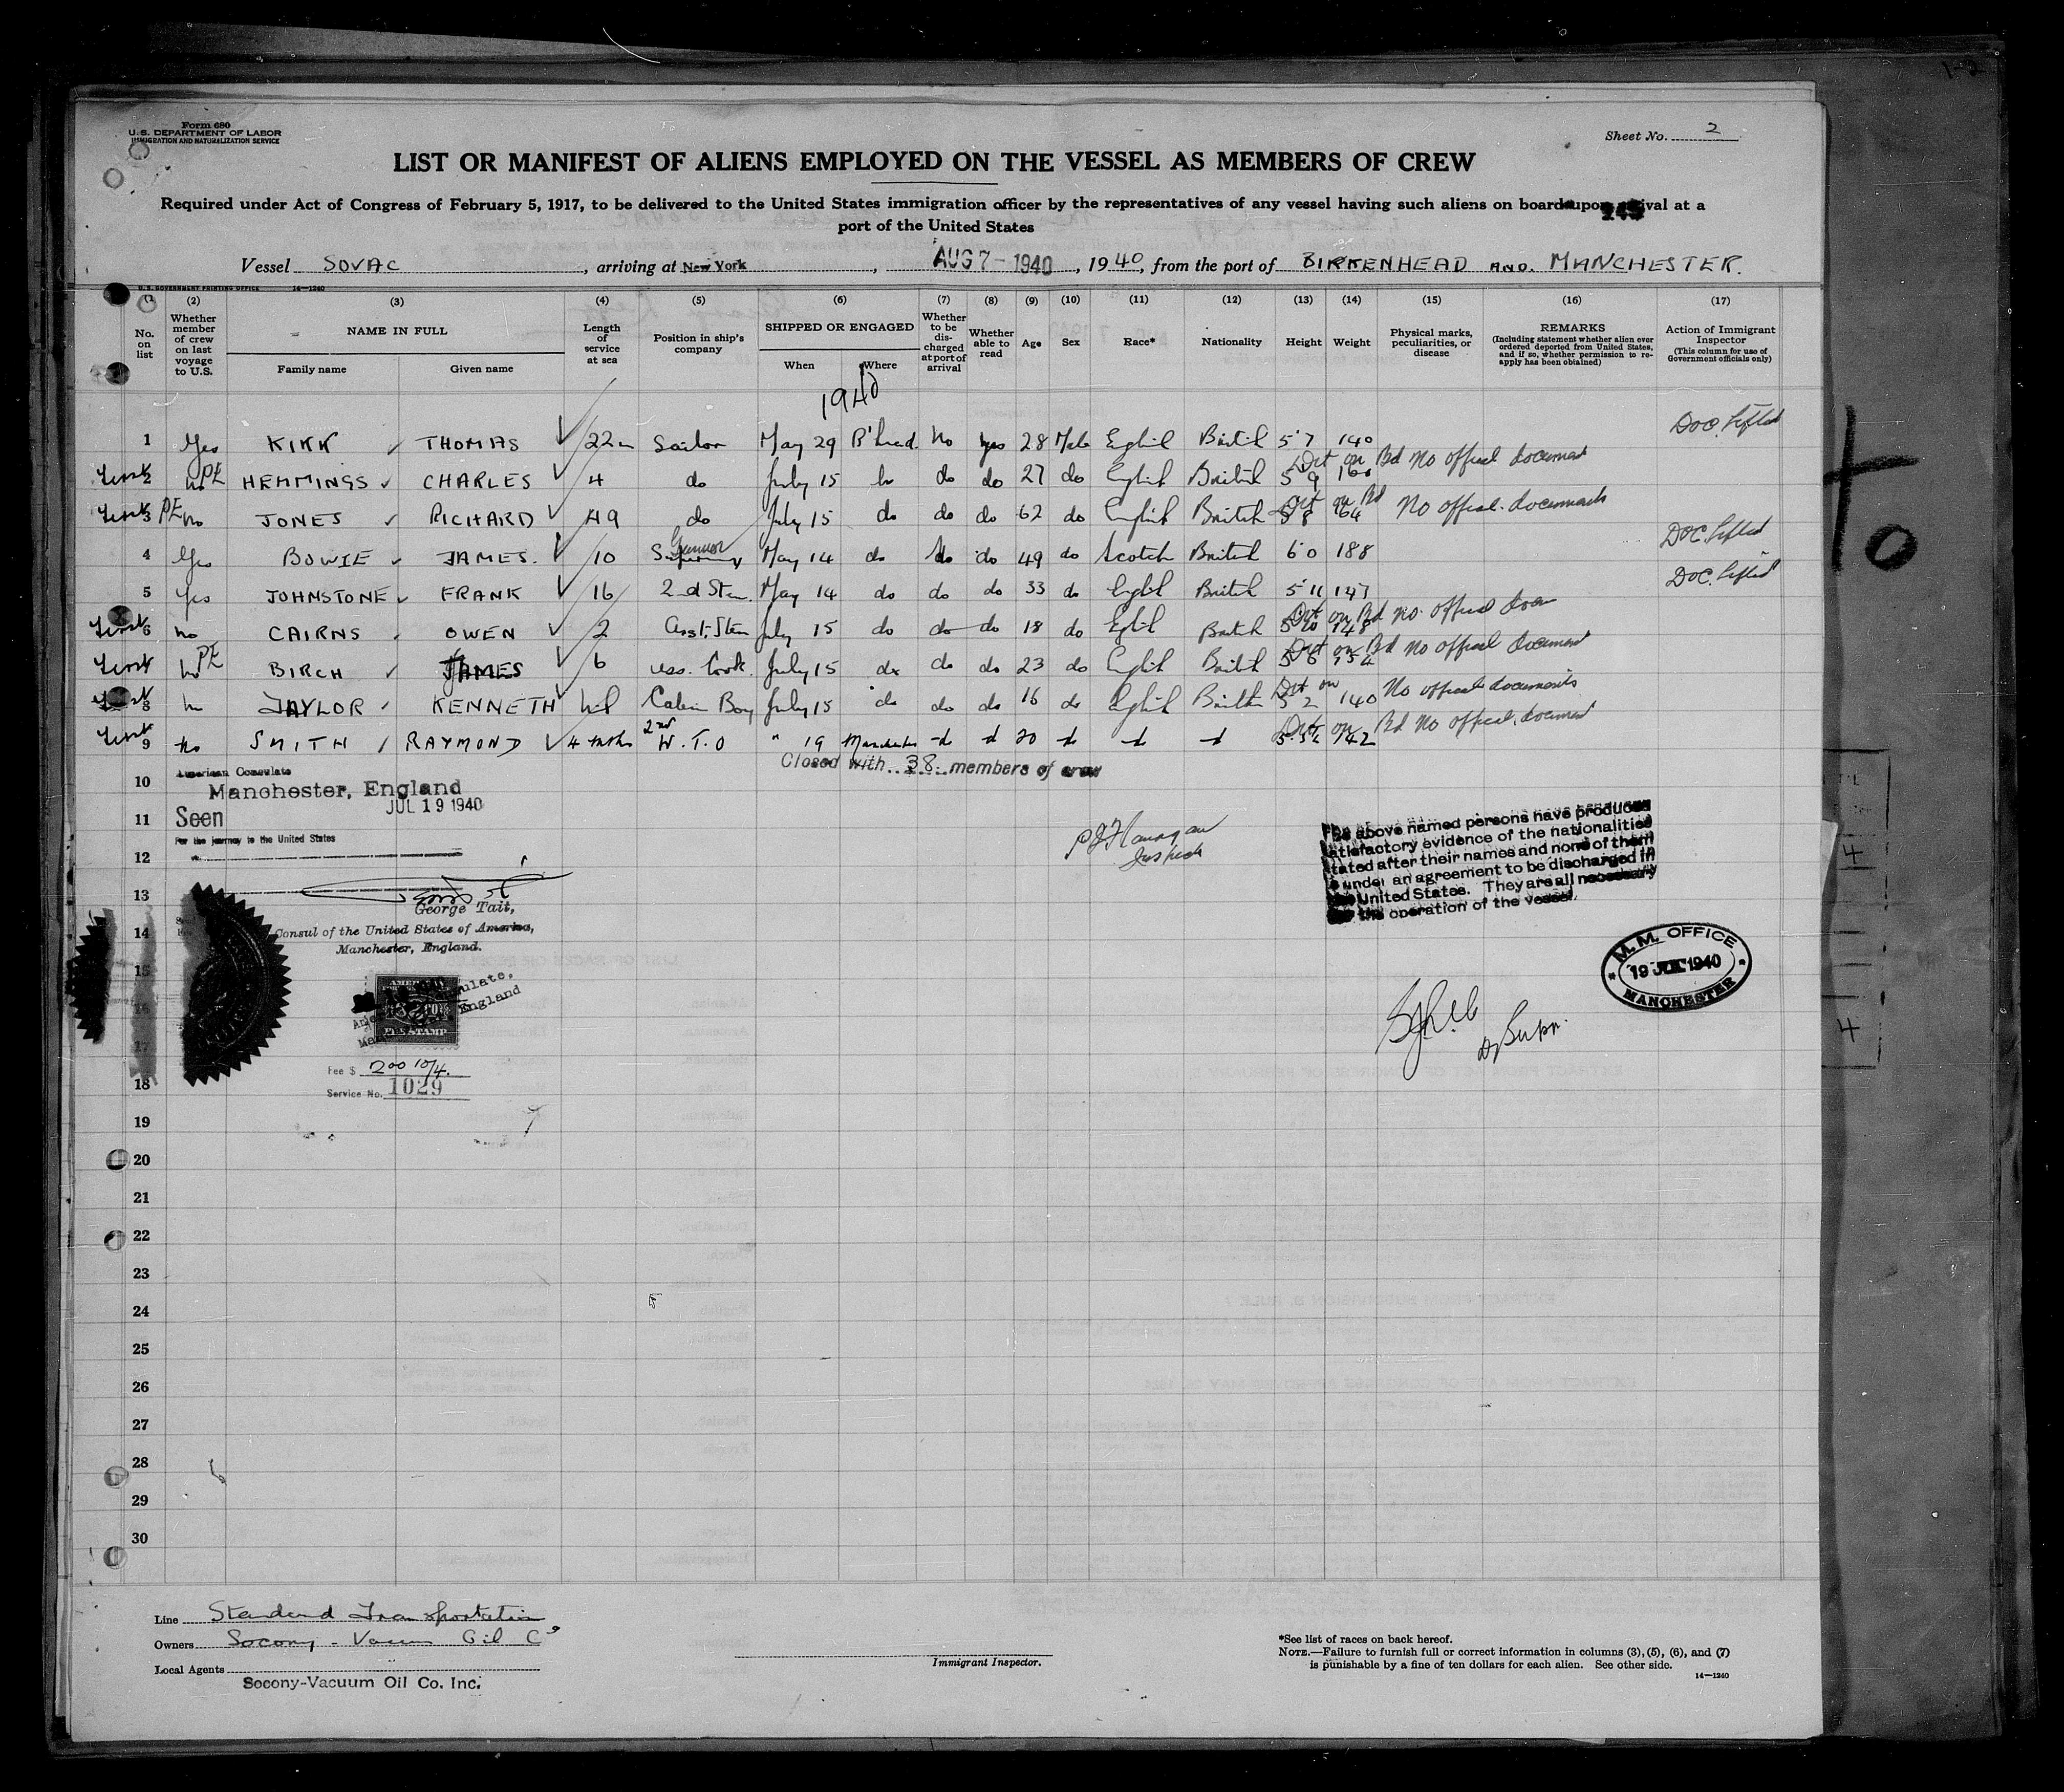 Form 680
U. S. DEPARTMENT OF LABOR
IMMIGRATION AND NATURALIZATION SERVICE
Sheet No. 2
LIST OR MANIFEST OF ALIENS EMPLOYED ON THE VESSEL AS MEMBERS OF CREW
Required under Act of Congress of February 5, 1917, to be delivered to the United States immigration officer by the representatives of any vessel having such aliens on board upon arrival at a
port of the United States
Vessel SOVAC, arriving at New York, AUG 7 - 1940, 1940, from the port of BIRKENHEAD AND. MANCHESTER.
U. S. GOVERNMENT PRINTING OFFICE 14—1240
(1) (2) (3) (4) (5) (6) (7) (8) (9) (10) (11) (12) (13) (14) (15) (16) (17)
No. on list
Whether member of crew on last voyage to U.S.
NAME IN FULL
Family name
Given name
Length of service at sea
Position in ship's company
SHIPPED OR ENGAGED
When
Where
Whether to be discharged at port of arrival
Whether able to read
Age
Sex
Race*
Nationality
Height
Weight
Physical marks, peculiarities, or disease
REMARKS
(Including statement whether alien ever ordered deported from United States, and if so, whether permission to reapply has been obtained)
Action of Immigrant Inspector
(This column for use of Government officials only)
1940
1 Yes KIRK THOMAS 22 Sailor May 29 B'head. No yes 28 Male English British 5'7 140 Doc. Lifted
First 2 no PE HEMMINGS CHARLES 4 do July 15 do do 27 do English British 5 9 160 Det on Bd No offical document
First 3 PE no JONES RICHARD 49 do July 15 do do do 62 do English British 5 8 164 Det on Bd No offical. documents
4 Yes BOWIE JAMES. 10 Gunner May 14 do do do 49 do Scotch British 6 0 188 DOC. Lifted
5 Yes JOHNSTONE FRANK 16 2nd Stew. May 14 do do do 33 do English British 5 11 147 DOC. Lifted
First 6 no CAIRNS OWEN 2 Asst. Stew July 15 do do do 18 do English British 5 10 148 Det on Bd no offical docum
First no PE BIRCH JAMES 6 Ass. Cook July 15 do do do 23 do English British 5 6 154 Det on Bd No offical document
First 8 no TAYLOR KENNETH nil Cabin Boy July 15 do do do 16 do English British 5 2 140 Det on No offical documents
First 9 no SMITH RAYMOND 4 mths 2nd W.T.O " 19 Manchester do do 20 do do do 142 Det on Bd No offical document
Closed with 38 members of crew
10
11
12
13
14
15
16
17
18
19
20
21
22
23
24
25
26
27
28
29
30
American Consulate
Manchester, England
JUL 19 1940
Seen
For the journey to the United States
George Tait,
Consul of the United States of America,
Manchester, England.
FEE STAMP
Fee $ 2.00 10/4.
Service No. 1029
Inspector
The above named persons have produced
satisfactory evidence of the nationalities
stated after their names and none of them
is under an agreement to be discharged in
the United States. They are all necessary
for the operation of the vessel.
M.M. OFFICE
19 JUL 1940
MANCHESTER
Dy Supr.
Line Standard Transportation
Owners Socony - Vacuum Oil Co
Local Agents
Socony-Vacuum Oil Co. Inc.
Immigrant Inspector.
*See list of races on back hereof.
NOTE.—Failure to furnish full or correct information in columns (3), (5), (6), and (7)
is punishable by a fine of ten dollars for each alien. See other side.
14—1240